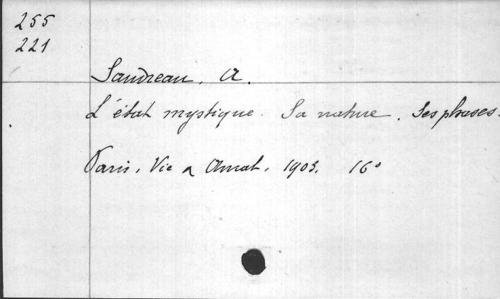 255
221
Saudreau, A.
L'état mystique. Sa nature. Ses phases.
Paris, Vic & Amat, 1903. 16°